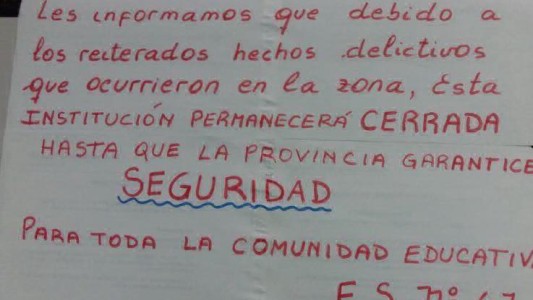 Les informamos que debido a
los reiterados hechos delictivos
que ocurrieron en la zona, ésta
INSTITUCIÓN PERMANECERÁ CERRADA
HASTA QUE LA PROVINCIA GARANTICE
SEGURIDAD
PARA TODA LA COMUNIDAD EDUCATIV
E.S. nº